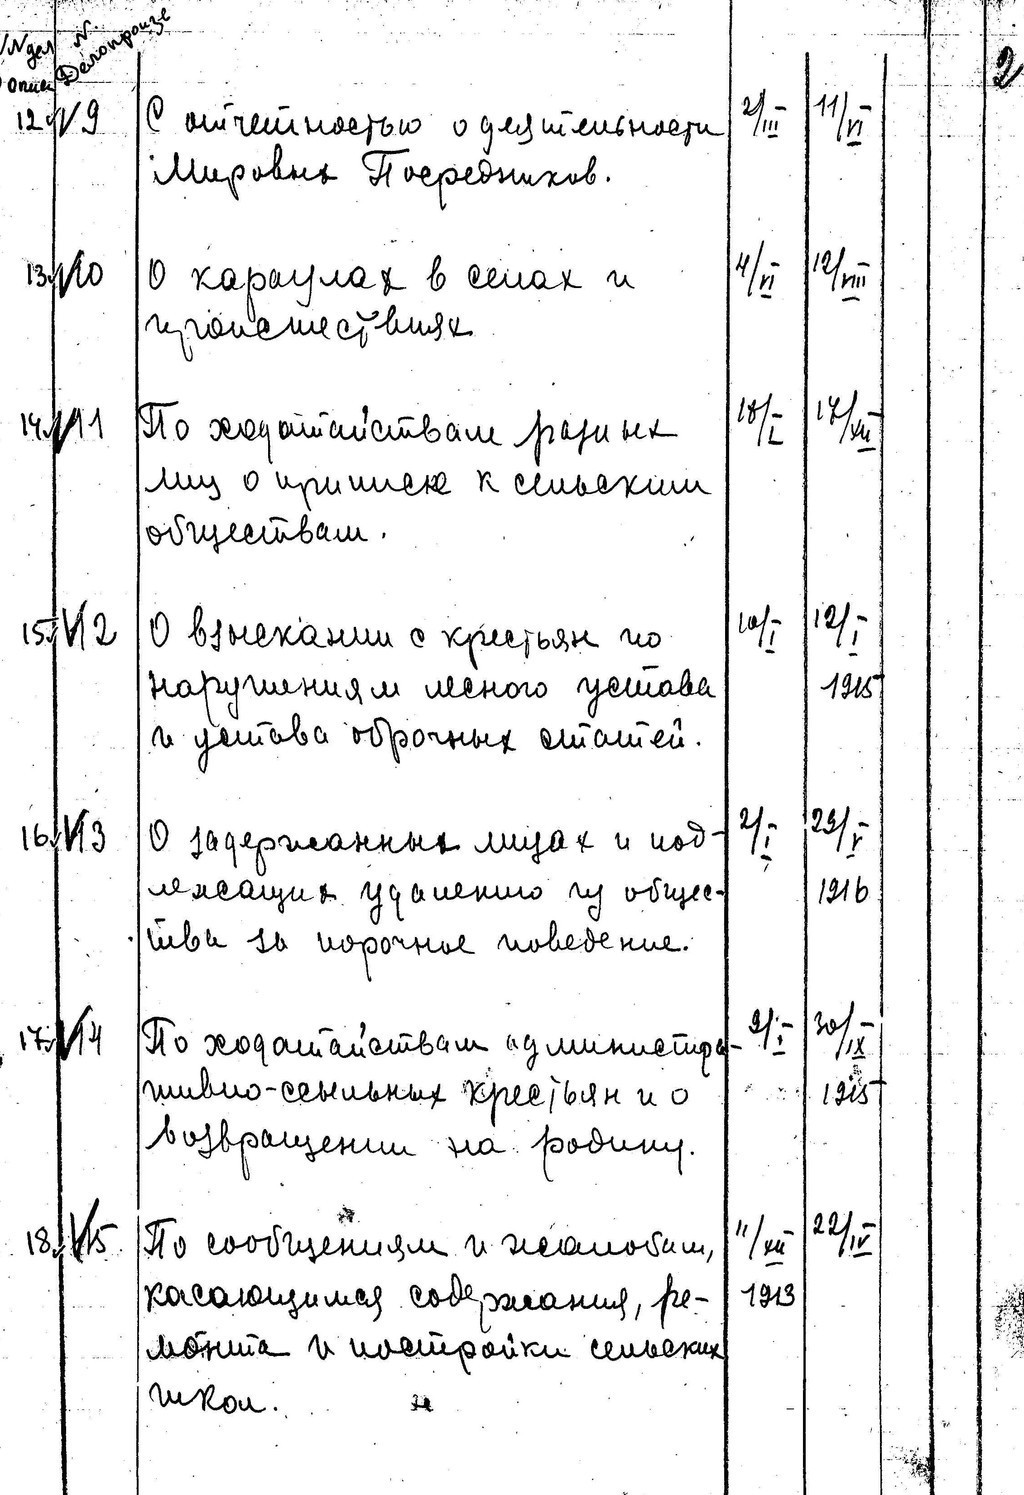 № дел описи
№ Делопроизв
2
12. 9 С отчетностью о деятельности 2/III 11/VI
Мировых Посредников.
13. 10 О караулах в селах и 4/VI 12/VIII
происшествиях
14. 11 По ходатайствам разных 18/I 17/XII
лиц о приписке к сельским
обществам.
15. 12 О взыскании с крестьян по 10/I 12/I
нарушениям лесного устава 1915
и устава оброчных статей.
16. 13 О задержанных лицах и под- 2/I 29/V
лежащих удалению из общес- 1916
тва за порочное поведение.
17. 14 По ходатайствам администра- 9/I 30/IX
тивно-ссыльных крестьян и о 1915
возвращении на родину.
18. 15 По сообщениям и жалобам, 11/XII 22/IV
касающимся содержания, ре- 1913
монта и постройки сельских
школ.